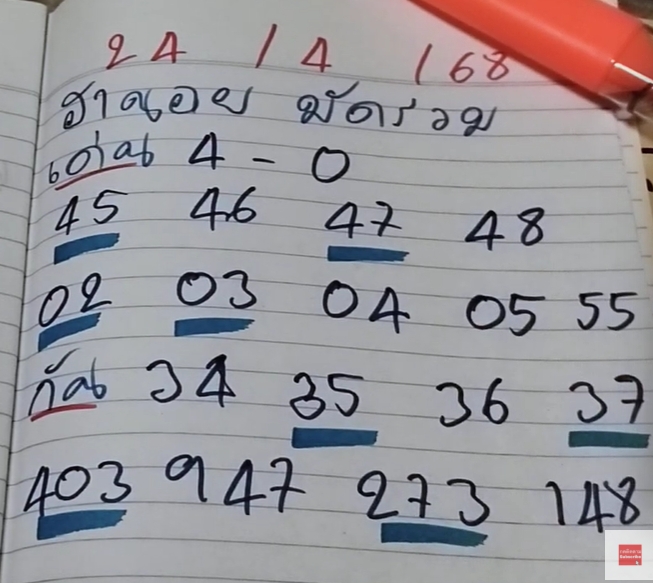 24 / 4 / 68
ฮานอย มัดรวม
เด่น 4 - 0
45 46 47 48
02 03 04 05 55
กัน 34 35 36 37
403 947 273 148